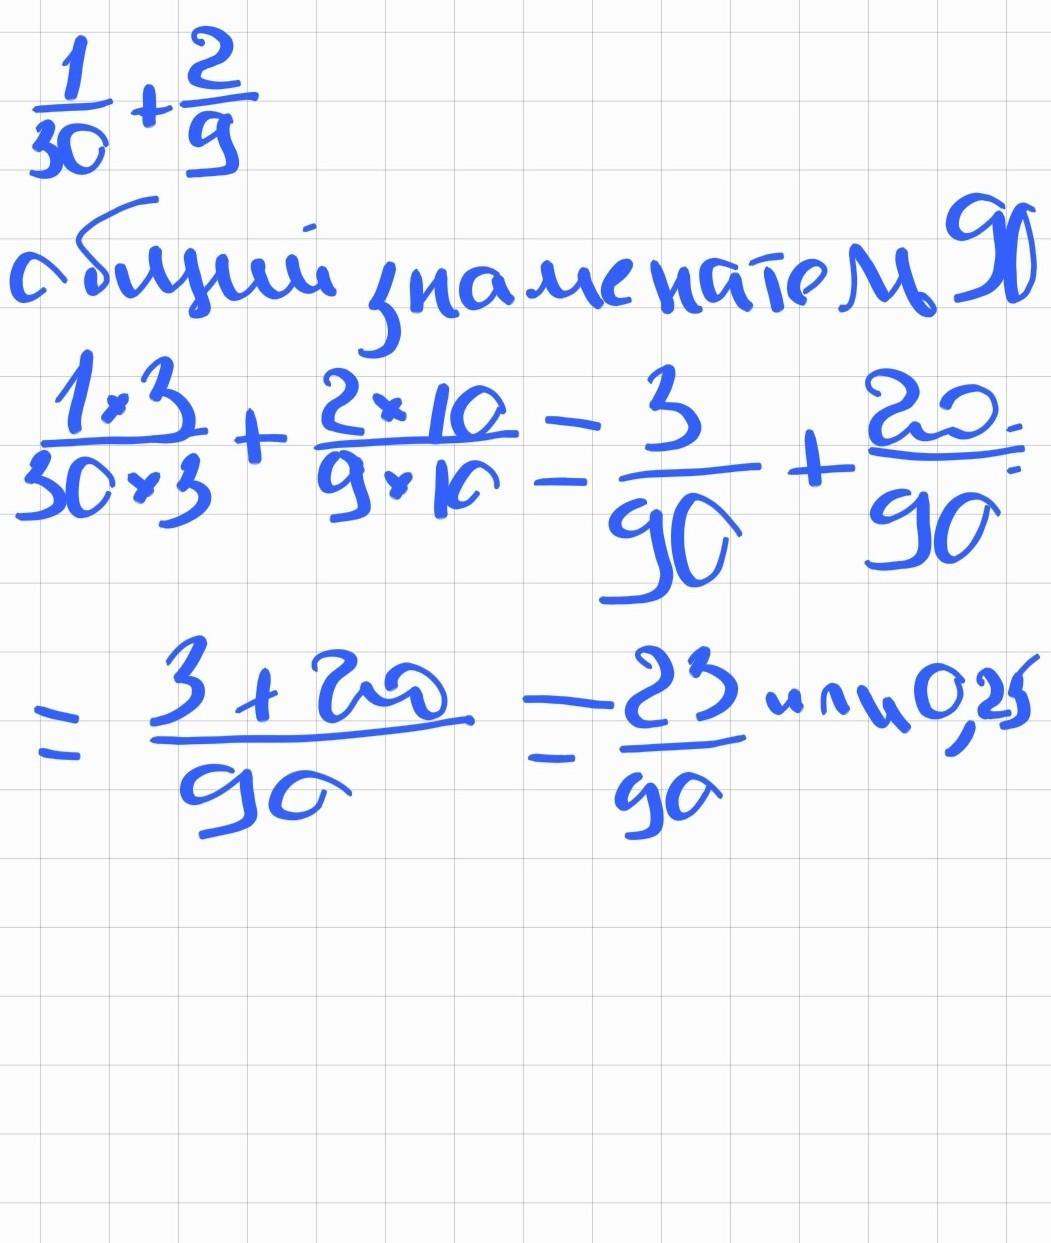 1/30 + 2/9
общий знаменатель 90
1×3/30×3 + 2×10/9×10 = 3/90 + 20/90 =
= 3+20/90 = 23/90 или 0,25